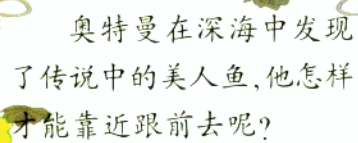 奥特曼在深海中发现
了传说中的美人鱼,他怎样
才能靠近跟前去呢?